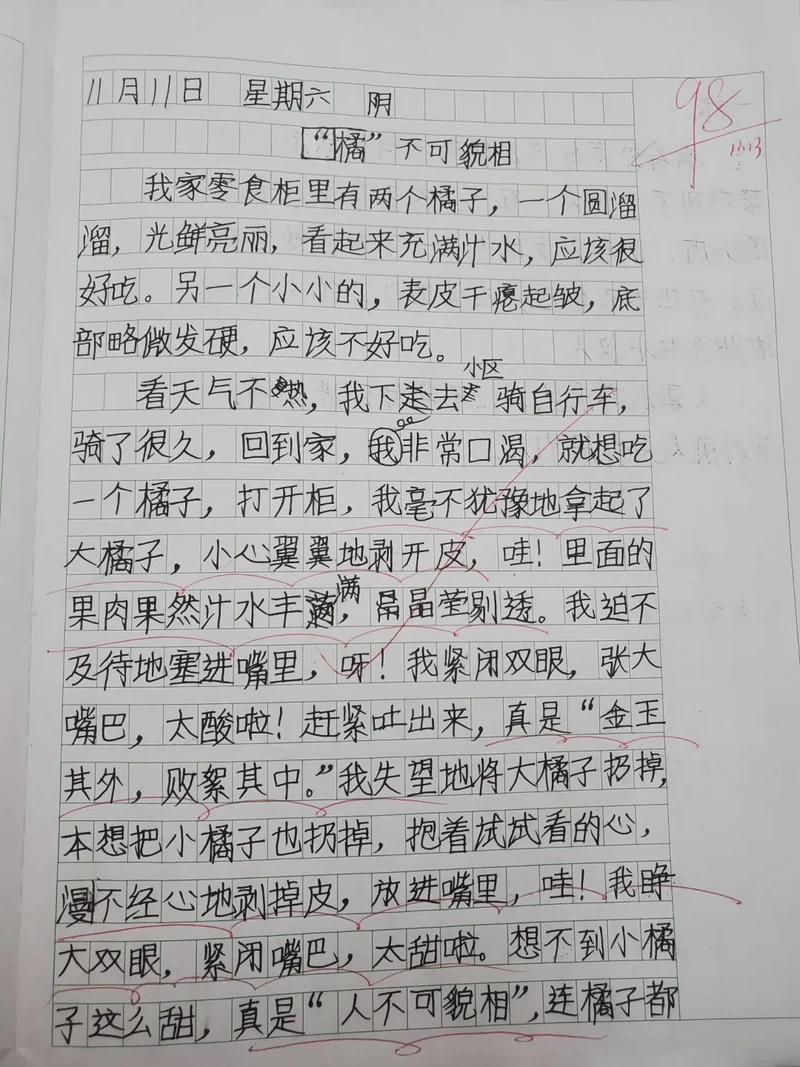 11月11日 星期六 阴
98
11.13
“橘”不可貌相
我家零食柜里有两个橘子，一个圆溜
溜，光鲜亮丽，看起来充满汁水，应该很
好吃。另一个小小的，表皮干瘪起皱，底
部略微发硬，应该不好吃。
小区
看天气不热，我下走去骑自行车，
骑了很久，回到家，我非常口渴，就想吃
一个橘子，打开柜，我毫不犹豫地拿起了
大橘子，小心翼翼地剥开皮，哇！里面的
满
果肉果然汁水丰，晶晶莹剔透。我迫不
及待地塞进嘴里，呀！我紧闭双眼，张大
嘴巴，太酸啦！赶紧吐出来，真是“金玉
其外，败絮其中。”我失望地将大橘子扔掉，
本想把小橘子也扔掉，抱着试试看的心，
漫不经心地剥掉皮，放进嘴里，哇！我睁
大双眼，紧闭嘴巴，太甜啦。想不到小橘
子这么甜，真是“人不可貌相”，连橘子都